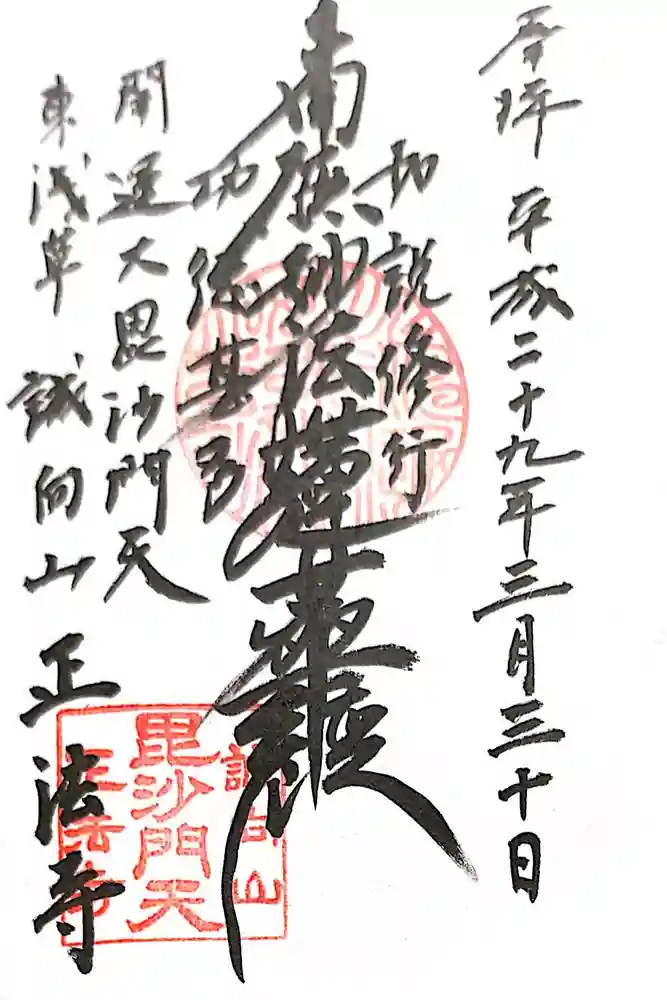 奉拝 平成二十九年三月三十日
如説修行
南無妙法蓮華経
功徳甚多
開運大毘沙門天
東浅草 誠向山 正法寺
誠向山
毘沙門天
正法寺